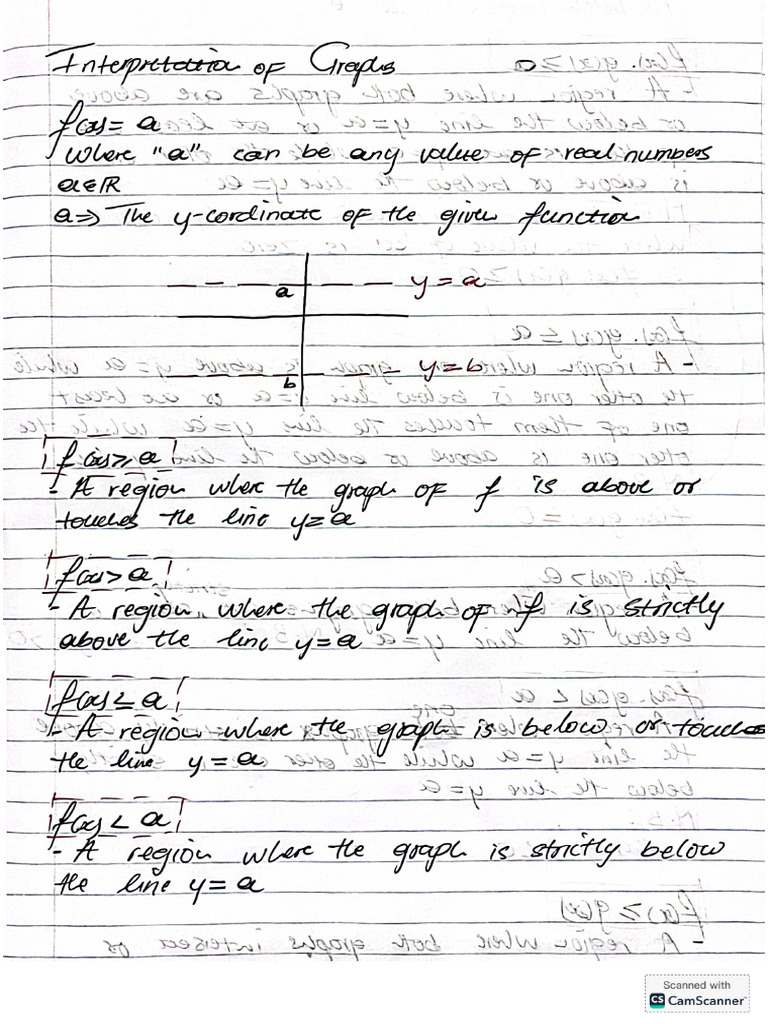 Interpretation of Graphs
f(x) = a
Where "a" can be any value of real numbers
a∈ℝ
a⇒ The y-cordinate of the given function
a y = a
y = b
b
f(x) ≥ a
- A region where the graph of f is above or
touches the line y = a
f(x) > a
- A region where the graph of f is strictly
above the line y = a
f(x) ≤ a
- A region where the graph is below or touches
the line y = a
f(x) < a
- A region where the graph is strictly below
the line y = a
Scanned with
CS CamScanner